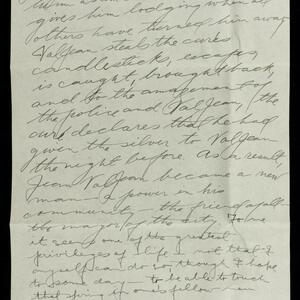 gives him lodging when all
others have turned him away
Valjean steals the curés
candlesticks, escapes,
is caught, brought back,
and to the amazement of
the police and Valjean, the
curé declares that he had
given the silver to Valjean
the night before. As a result,
Jean Valjean became a new
man – a power in his
community – the friend of all
the mayor of the city. To me
it seems one of the greatest
privileges of life – not that I
myself can do so, though I hope
to some day – to be able to touch
that spring in one's fellow men